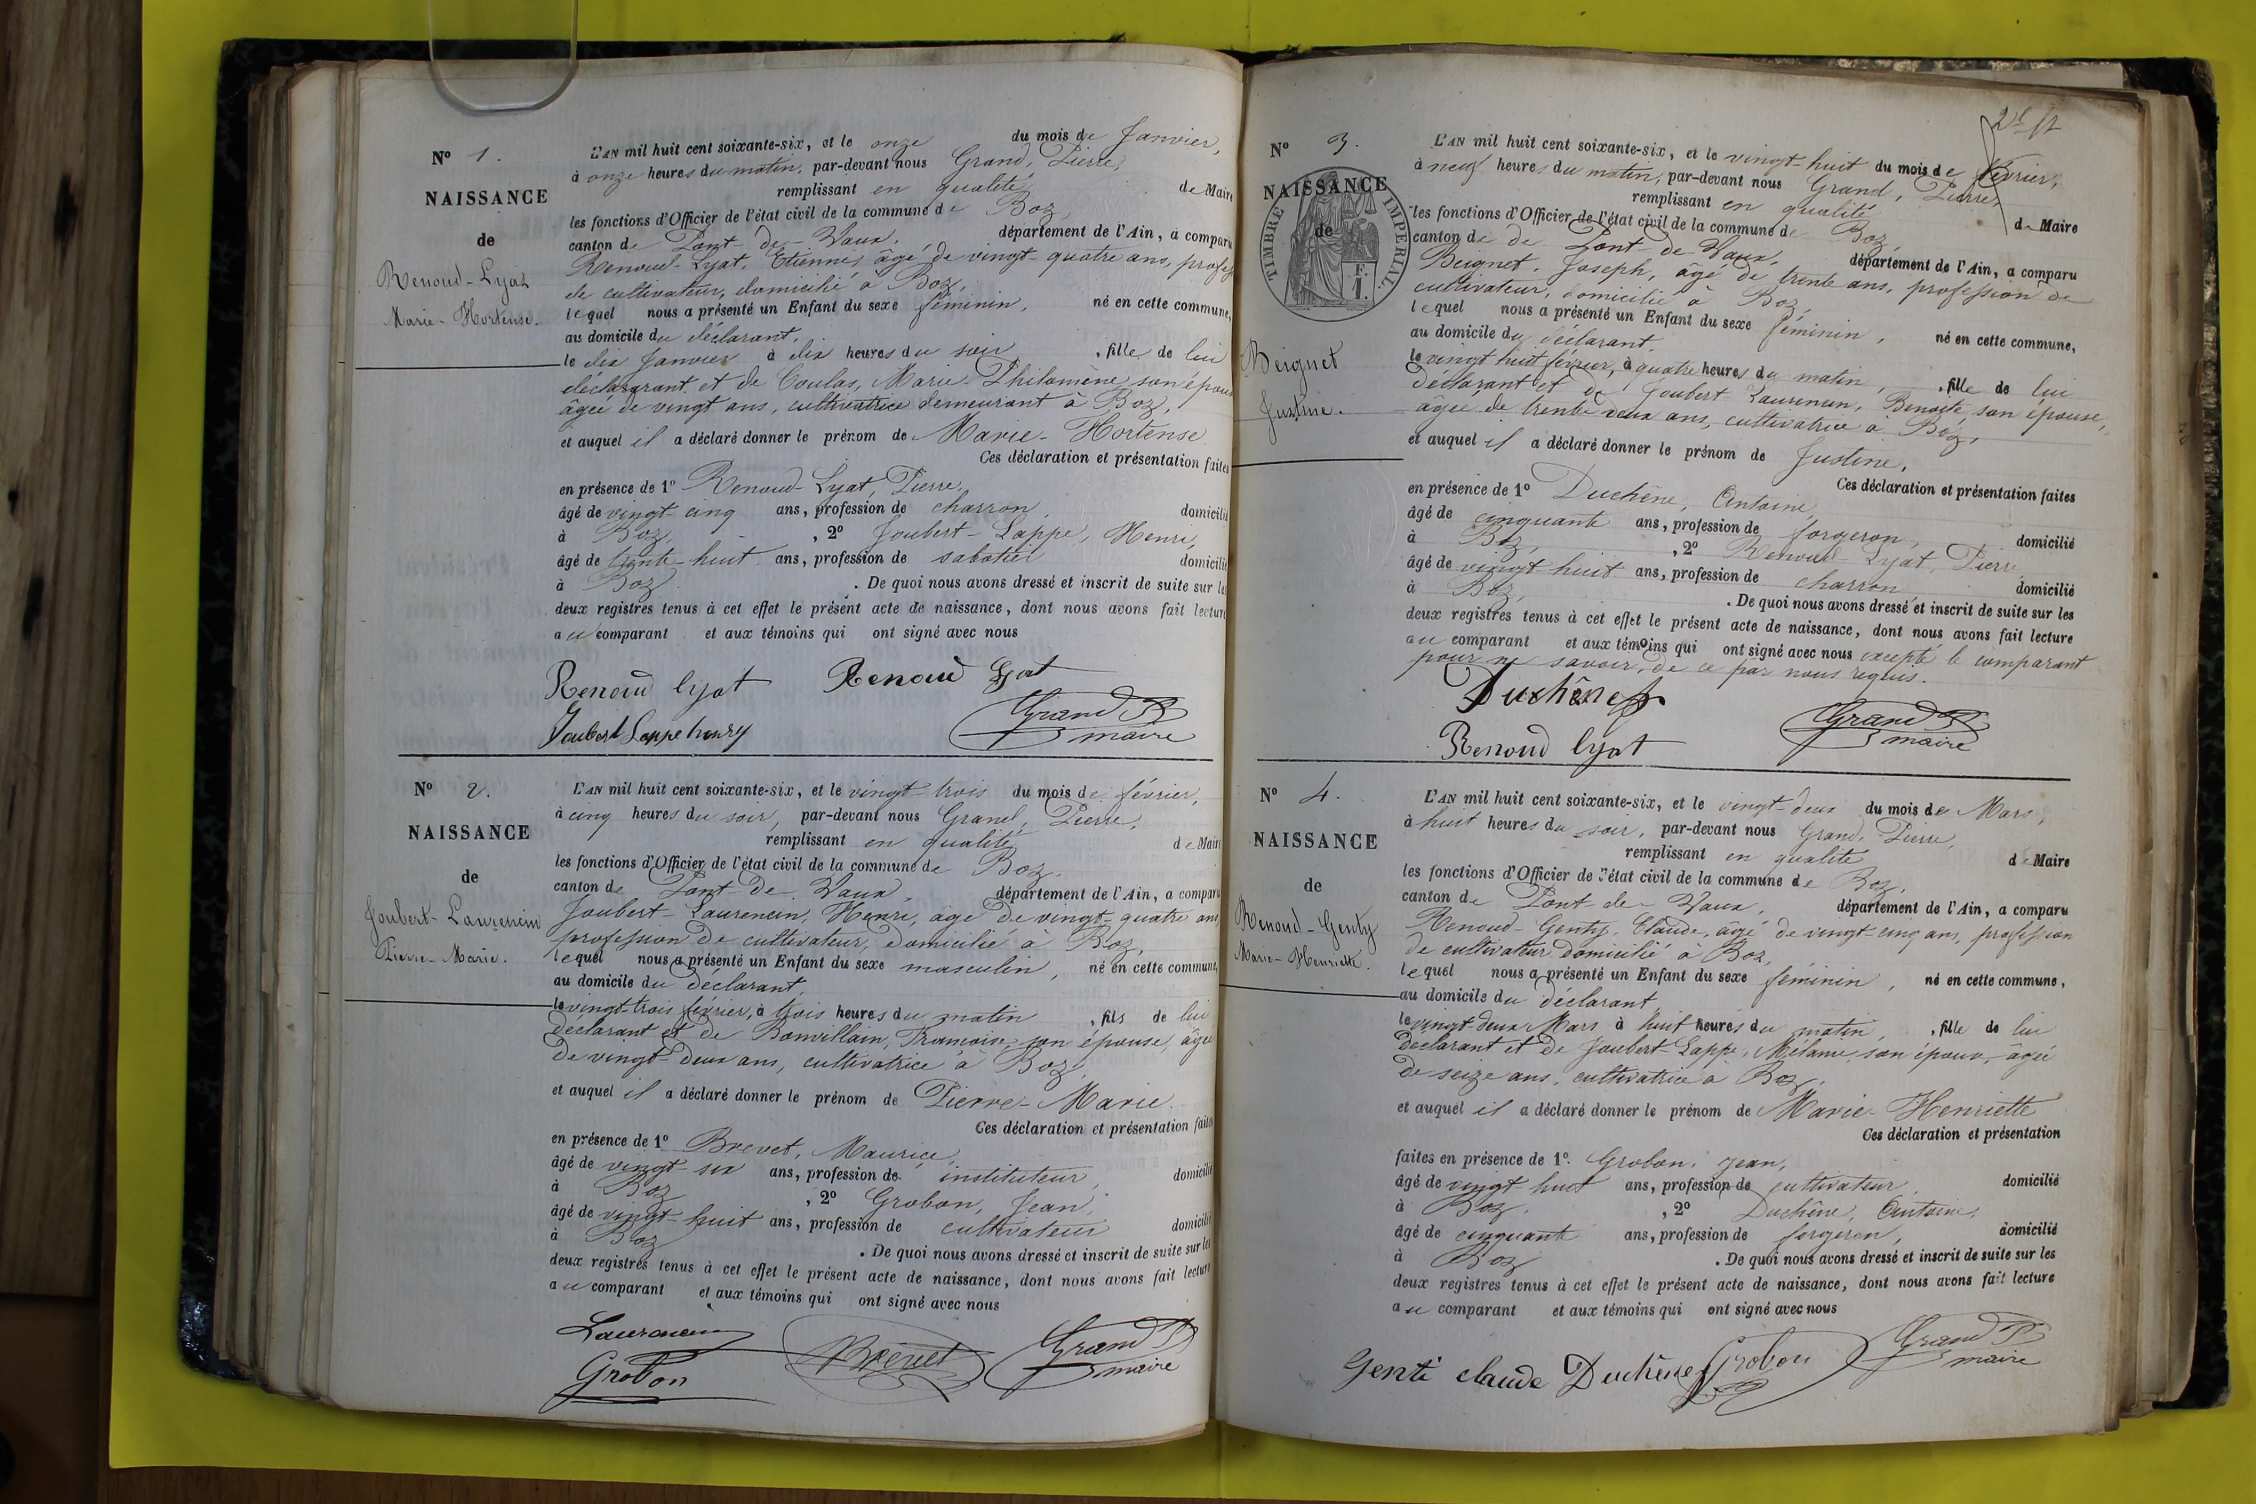 N° 1.
NAISSANCE
de
Renoud-Lyat
Marie-Hortense.
L'AN mil huit cent soixante-six, et le onze du mois de Janvier,
à onze heures du matin, par-devant nous Grand, Pierre,
remplissant en qualité de Maire
les fonctions d'Officier de l'état civil de la commune de Boz,
canton de Pont-de-Vaux, département de l'Ain, a comparu
Renoud-Lyat, Etienne, âgé de vingt-quatre ans, profess
de cultivateur, domicilié à Boz,
lequel nous a présenté un Enfant du sexe féminin, né en cette commune,
au domicile du déclarant,
le dix Janvier à dix heures du soir, fille de lui
déclararant et de Coulas, Marie-Philomène son épouse
âgée de vingt ans, cultivatrice demeurant à Boz,
et auquel il a déclaré donner le prénom de Marie-Hortense
Ces déclaration et présentation faites
en présence de 1° Renoud-Lyat, Pierre,
âgé de vingt cinq ans, profession de charron, domicilié
à Boz, , 2° Joubert-Lappe, Henri,
âgé de trente-huit ans, profession de sabotier domicilié
à Boz. . De quoi nous avons dressé et inscrit de suite sur les
deux registres tenus à cet effet le présent acte de naissance, dont nous avons fait lecture
au comparant et aux témoins qui ont signé avec nous
Renoud lyat Renoud Lyat
Joubert Lappe henry Grand P.
maire
N° 2.
NAISSANCE
de
Joubert-Laurencin
Pierre-Marie.
L'AN mil huit cent soixante-six, et le vingt-trois du mois de février,
à cinq heures du soir, par-devant nous Grand, Pierre,
remplissant en qualité de Maire
les fonctions d'Officier de l'état civil de la commune de Boz,
canton de Pont-de-Vaux, département de l'Ain, a comparu
Joubert-Laurencin, Henri, âgé de vingt-quatre ans,
profession de cultivateur, domicilié à Boz,
lequel nous a présenté un Enfant du sexe masculin, né en cette commune,
au domicile du déclarant,
le vingt-trois février, à trois heures du matin, fils de lui
déclarant et de Bonvillain, Françoise, son épouse, âgée
de vingt-deux ans, cultivatrice à Boz,
et auquel il a déclaré donner le prénom de Pierre-Marie
Ces déclaration et présentation faites
en présence de 1° Brevet, Maurice,
âgé de vingt-six ans, profession de instituteur, domicilié
à Boz , 2° Grobon, Jean,
âgé de vingt-huit ans, profession de cultivateur domicilié
à Boz . De quoi nous avons dressé et inscrit de suite sur les
deux registres tenus à cet effet le présent acte de naissance, dont nous avons fait lecture
au comparant et aux témoins qui ont signé avec nous
Laurencin Brevet Grand P.
Grobon maire
N° 3.
NAISSANCE
de
TIMBRE IMPERIAL.
Beignet
Justine.
L'AN mil huit cent soixante-six, et le vingt-huit du mois de février,
à neuf heures du matin, par-devant nous Grand, Pierre,
remplissant en qualité de Maire
les fonctions d'Officier de l'état civil de la commune de Boz,
canton de de Pont de Vaux, département de l'Ain, a comparu
Beignet, Joseph, âgé de trente ans, profession de
cultivateur, domicilié à Boz,
lequel nous a présenté un Enfant du sexe féminin, né en cette commune,
au domicile du déclarant,
le vingt huit février, à quatre heures du matin, fille de lui
déclarant et de Joubert Laurencin, Benoîte, son épouse,
âgée de trente deux ans, cultivatrice à Boz,
et auquel il a déclaré donner le prénom de Justine,
Ces déclaration et présentation faites
en présence de 1° Duchêne, Antoine,
âgé de cinquante ans, profession de forgeron, domicilié
à Boz, , 2° Renoud Lyat, Pierre
âgé de vingt huit ans, profession de charron domicilié
à Boz, . De quoi nous avons dressé et inscrit de suite sur les
deux registres tenus à cet effet le présent acte de naissance, dont nous avons fait lecture
au comparant et aux témoins qui ont signé avec nous excepté le comparant
pour ne savoir, de ce par nous requis.
Duchêne
Renoud lyat Grand P.
maire
N° 4.
NAISSANCE
de
Renoud-Genty
Marie-Henriette.
L'AN mil huit cent soixante-six, et le vingt-deux du mois de Mars,
à huit heures du soir, par-devant nous Grand, Pierre,
remplissant en qualité de Maire
les fonctions d'Officier de l'état civil de la commune de Boz,
canton de Pont-de-Vaux, département de l'Ain, a comparu
Renoud-Genty, Claude, âgé de vingt-cinq ans, profession
de cultivateur domicilié à Boz,
lequel nous a présenté un Enfant du sexe féminin, né en cette commune,
au domicile du déclarant,
le vingt-deux Mars à huit heures du matin, fille de lui
déclarant et de Joubert-Lappe, Mélanie, son épouse, âgée
de seize ans, cultivatrice à Boz,
et auquel il a déclaré donner le prénom de Marie-Henriette
Ces déclaration et présentation
faites en présence de 1°. Grobon, Jean,
âgé de vingt-huit ans, profession de cultivateur, domicilié
à Boz. , 2° Duchêne, Antoine,
âgé de cinquante ans, profession de forgeron, domicilié
à Boz . De quoi nous avons dressé et inscrit de suite sur les
deux registres tenus à cet effet le présent acte de naissance, dont nous avons fait lecture
au comparant et aux témoins qui ont signé avec nous
Genti claude Duchêne Grobon Grand P.
maire